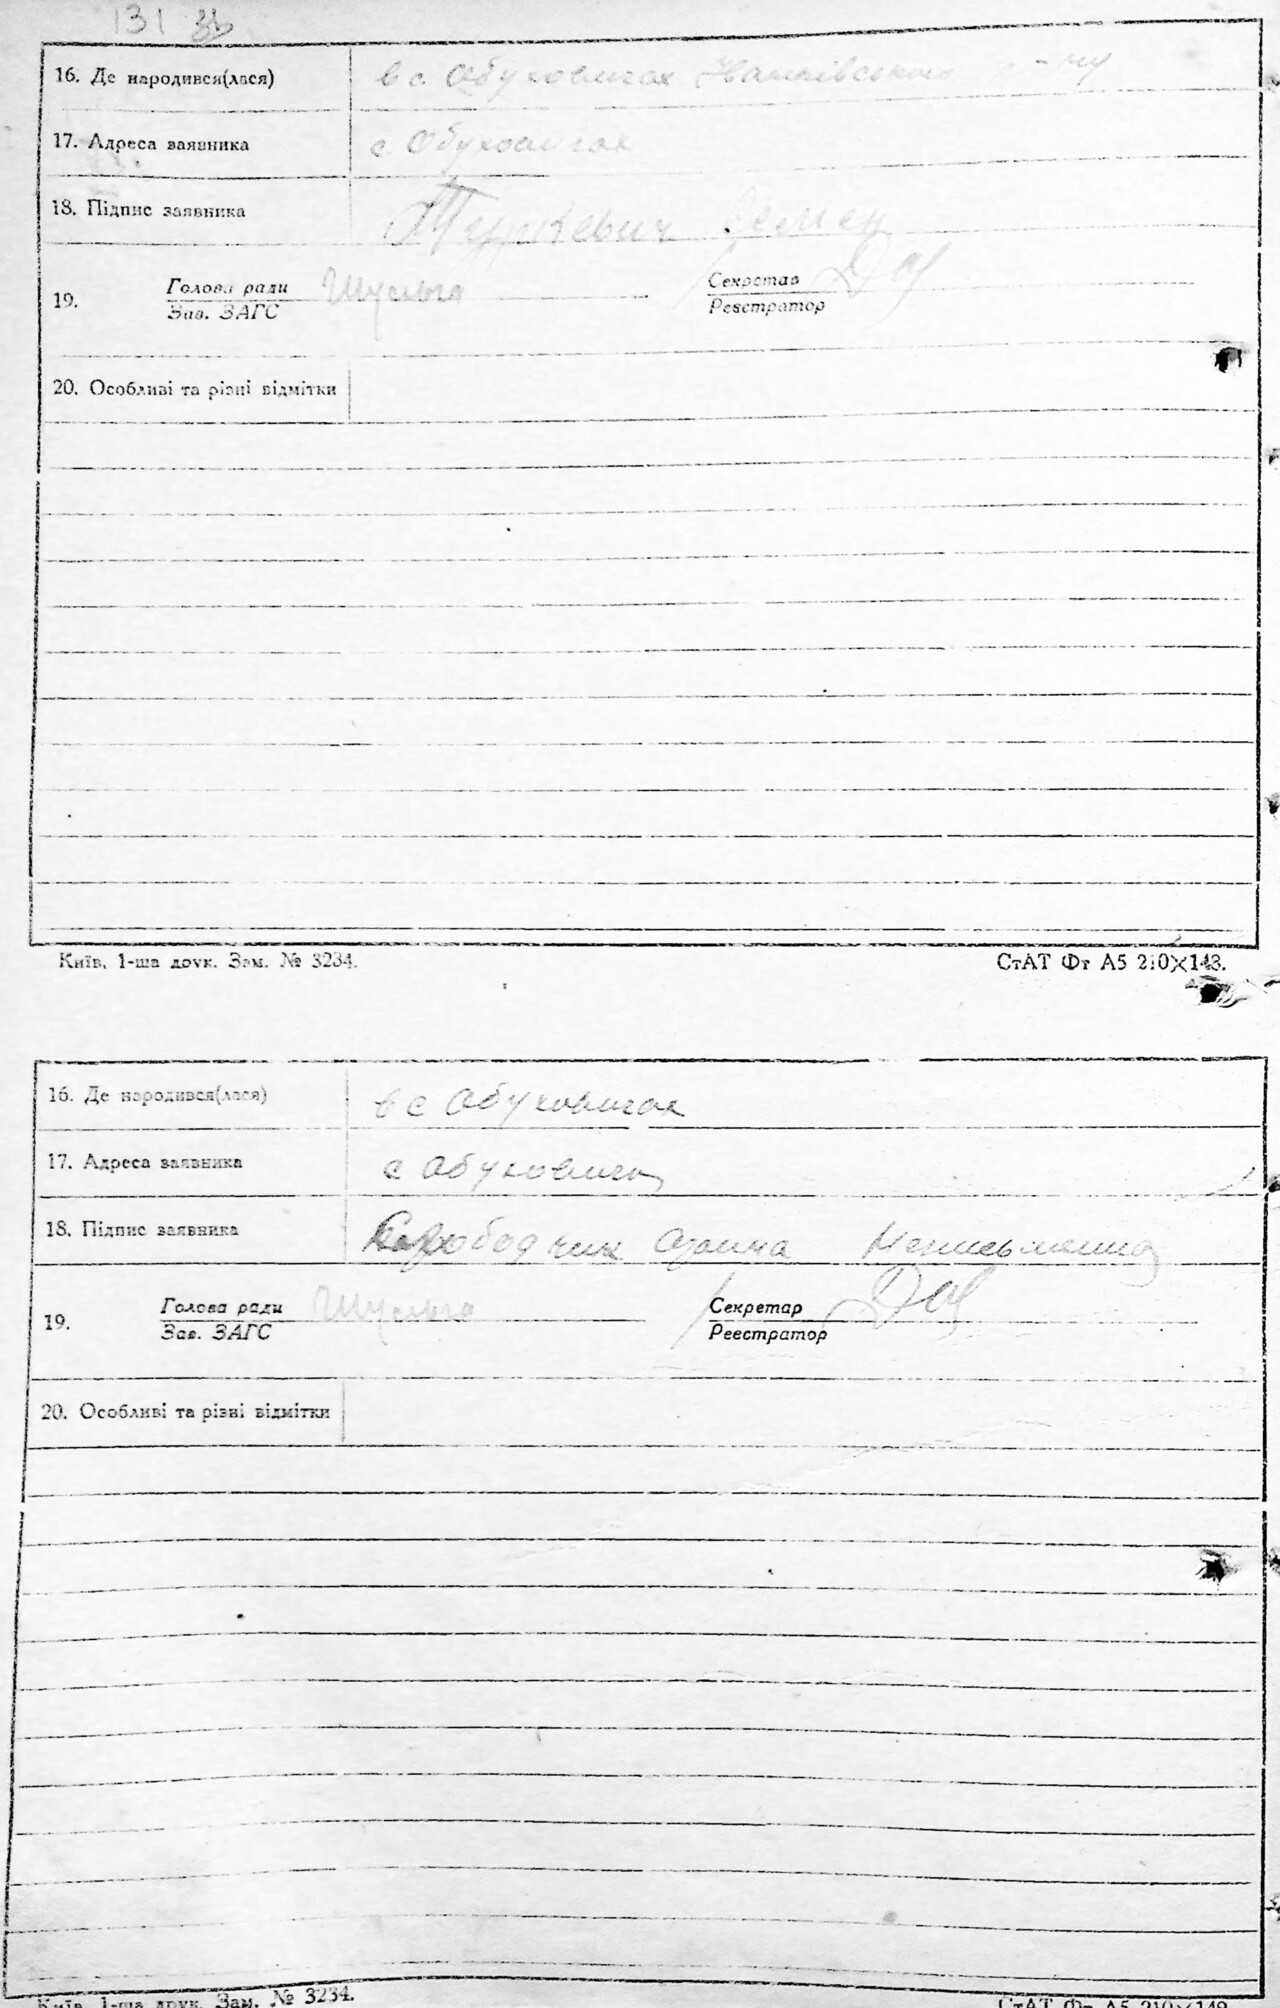 131 зв
16. Де народився(лася) в с. Обуховичах
17. Адреса заявника с. Обуховичах
18. Підпис заявника
19. Голова ради Шульга Секретар
Зав. ЗАГС Реєстратор
20. Особливі та різні відмітки
Київ, 1-ша друк. Зам. № 3234. СтАТ Фт А5 210×148.
16. Де народився(лася) в с Обуховичах
17. Адреса заявника с Обуховичах
18. Підпис заявника Неписьменна
19. Голова ради Шульга Секретар
Зав. ЗАГС Реєстратор
20. Особливі та різні відмітки
Київ, 1-ша друк. Зам. № 3234. СтАТ Фт А5 210×148